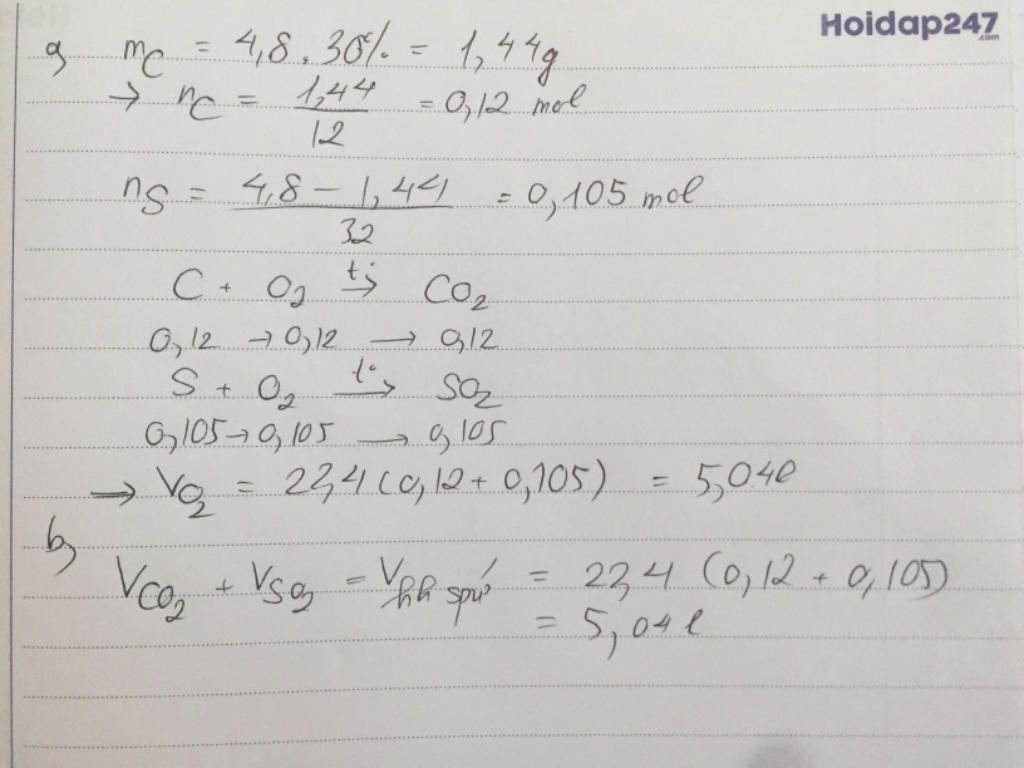 Hoidap247
.com
a, mC = 4,8 . 30% = 1,44g
→ nC = 1,44 / 12 = 0,12 mol
nS = 4,8 - 1,44 / 32 = 0,105 mol
C + O2 t° → CO2
0,12 → 0,12 → 0,12
S + O2 t° → SO2
0,105 → 0,105 → 0,105
→ VO2 = 22,4 (0,12 + 0,105) = 5,04l
b,
VCO2 + VSO2 = Vhh spứ = 22,4 (0,12 + 0,105)
= 5,04l